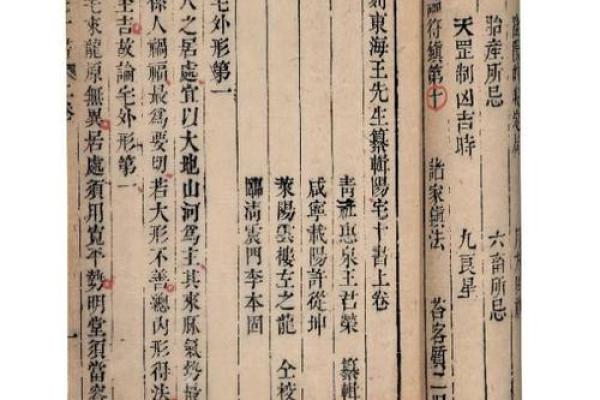 胎產所忌 六畜所忌
天罡制凶吉時 九良星
論符鎮第十 諸家鎮法 荅客質二
刻東海王先生纂輯陽宅十書上卷
青社惠泉王君榮 纂輯
咸寧載陽許從坤
萊陽雲樓左之龍 仝校
臨淸震門李本固
宅外形第一
人之居處宜以大地山河爲主其來脉氣勢最
係人禍福最爲要切若大形不善總內形得法
至吉故論宅外形第一
宅來龍原無異居處須用寬平勢明堂須當容
十書 卷 一